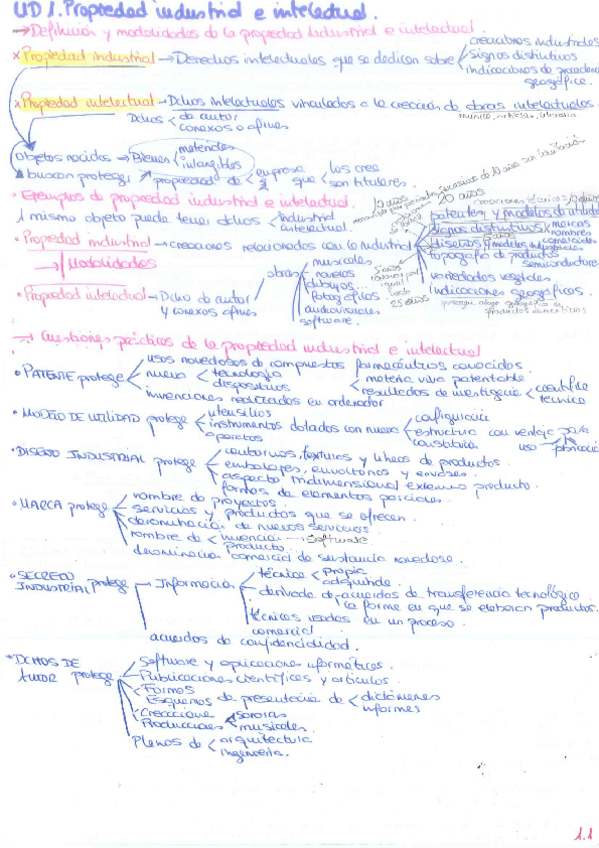 UD 1. Propiedad industrial e intelectual.
→ Definición y modalidades de la propiedad industrial e intelectual.
x Propiedad industrial → Derechos intelectuales que se dedican sobre
creaciones industriales
signos distintivos
indicaciones de procedencia
geográfica.
x Propiedad intelectual → Dchos intelectuales vinculados a la creación de obras intelectuales.
Dchos < de autor
conexos o afines
objetos nacidos → Bienes < materiales
intangibles
buscan proteger → propiedad de < empresa que < los cree
son titulares.
• Ejemplos de propiedad industrial e intelectual.
1 mismo objeto puede tener dchos < industrial
intelectual.
20 años
patentes y modelos de utilidad
signos distintivos < marcas
nombres
comerciales
• Propiedad industrial → creaciones relacionadas con la industrial
diseños
topografía de productos
semiconductores
variedades vegetales
indicaciones geográficas.
→ Modalidades
• Propiedad intelectual → Dcho de autor
y conexos afines
obras
musicales
novelas
dibujos...
fotografías
audiovisuales
software.
25 años
→ Cuestiones prácticas de la propiedad industrial e intelectual
• PATENTE protege
usos novedosos de compuestos farmacéuticos conocidos.
nueva < tecnología
dispositivos
materia viva patentable
resultados de investigación < científica
técnica
invenciones realizadas en ordenador
• MODELO DE UTILIDAD protege
utensilios
instrumentos dotados con nueva
aparatos
configuración
estructura con ventaja para
uso
• DISEÑO INDUSTRIAL protege
contornos, texturas y líneas de productos.
embalajes, envoltorios y envases.
aspecto tridimensional externo producto.
formas de elementos parciales.
• MARCA protege
nombre de proyectos.
servicios y productos que se ofrecen.
denominación de nuevos servicios
nombre de < invención → software
producto
denominación comercial de sustancia novedosa.
• SECRETO INDUSTRIAL protege → Información
técnica < propia
adquirida.
derivada de acuerdos de transferencia tecnológica
la forma en que se elaboran productos.
técnicas usadas en un proceso.
comercial
acuerdos de confidencialidad.
• DCHOS DE AUTOR protege
Software y aplicaciones informáticas.
Publicaciones científicas y artículos.
Formas
Esquemas de presentación de < dictámenes
informes
Creaciones
Producciones < sonoras
musicales.
Planos de < arquitectura
ingeniería.
1.1